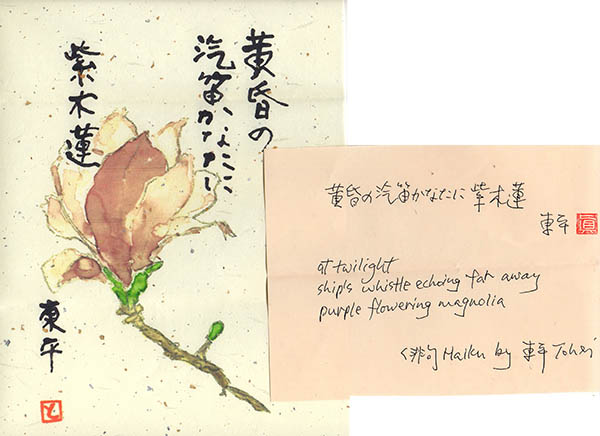 黄昏の
汽笛かなたに
紫木蓮
東平
黄昏の汽笛かなたに 紫木蓮
東平
at twilight
ship's whistle echoing far away
purple flowering magnolia
俳句 Haiku by 東平 Tohei